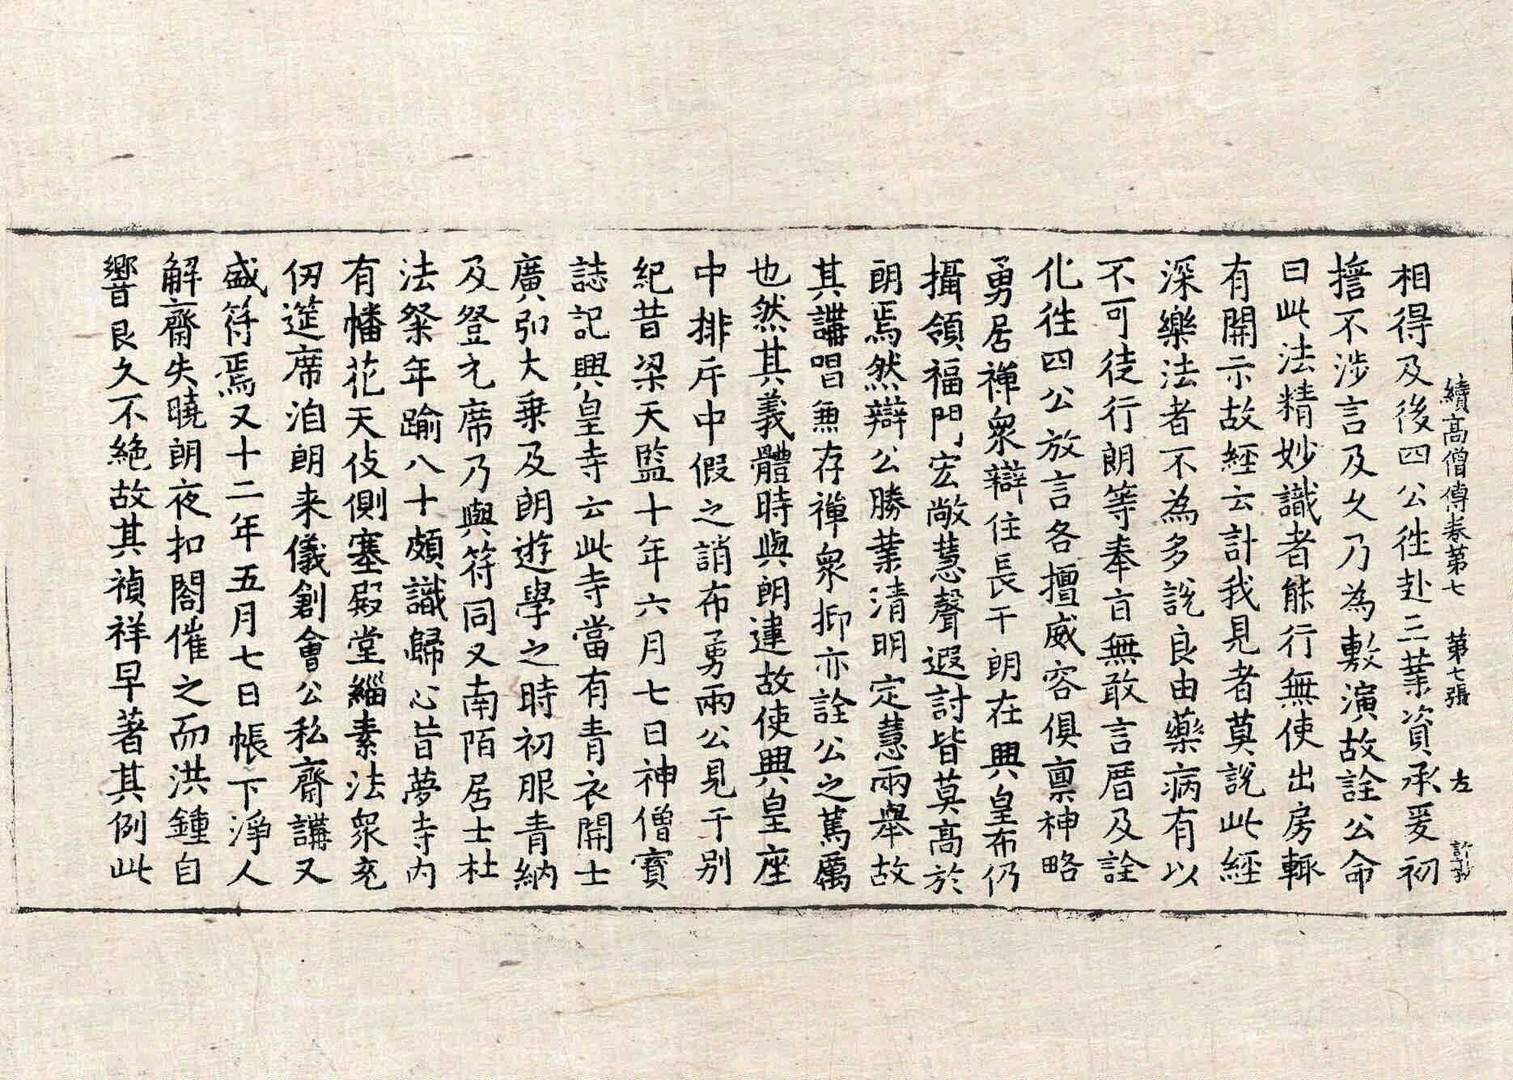 續高僧傳卷第七　第七張　左
相得及後四公徃赴三業資承爰初
擔不涉言及久乃為敷演故詮公命
曰此法精妙識者能行無使出房輒
有開示故經云計我見者莫說此經
深樂法者不為多說良由藥病有以
不可徒行朗等奉旨無敢言厝及詮
化徃四公放言各擅威容俱稟神略
勇居禪眾辯住長干朗在興皇布仍
攝領福門宏敞慧聲遐討皆莫高於
朗焉然辯公勝業清明定慧兩舉故
其講唱無存禪眾抑亦詮公之篤厲
也然其義體時與朗違故使興皇座
中排斥中假之誚布勇兩公見于別
紀昔梁天監十年六月七日神僧寶
誌記興皇寺云此寺當有青衣開士
廣弘大乗及朗遊學之時初服青納
及登元席乃與符同又南陌居士杜
法粲年踰八十頗識歸心昔夢寺內
有幡花天伎側塞殿堂緇素法眾充
仞筵席洎朗来儀創會公私齋講又
盛符焉又十二年五月七日帳下淨人
解齋失曉朗夜扣閤催之而洪鍾自
響良久不絶故其禎祥早著其例此